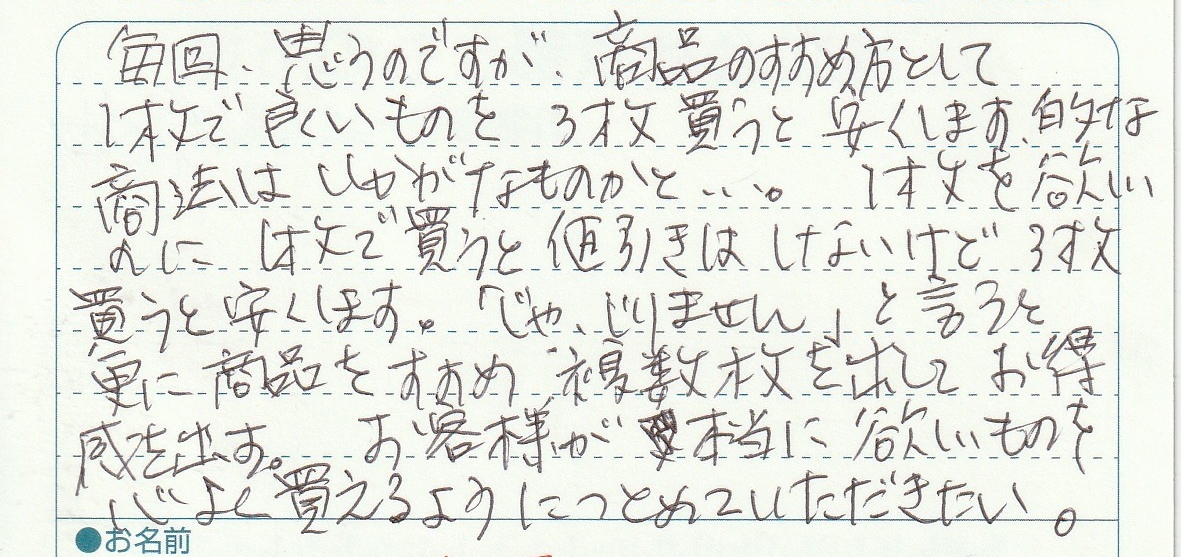 毎回、思うのですが、商品のすすめ方として
1枚で良いものを 3枚買うと安くします、的な
商法はいかがなものかと...。 1枚を欲しい
のに 1枚で買うと値引きはしないけど 3枚
買うと安くします。「じゃ、いりません」と言うと
更に商品をすすめ、複数枚を出してお得
感を出す。 お客様が本当に欲しいものを
心よく買えるようにつとめていただきたい。
●お名前